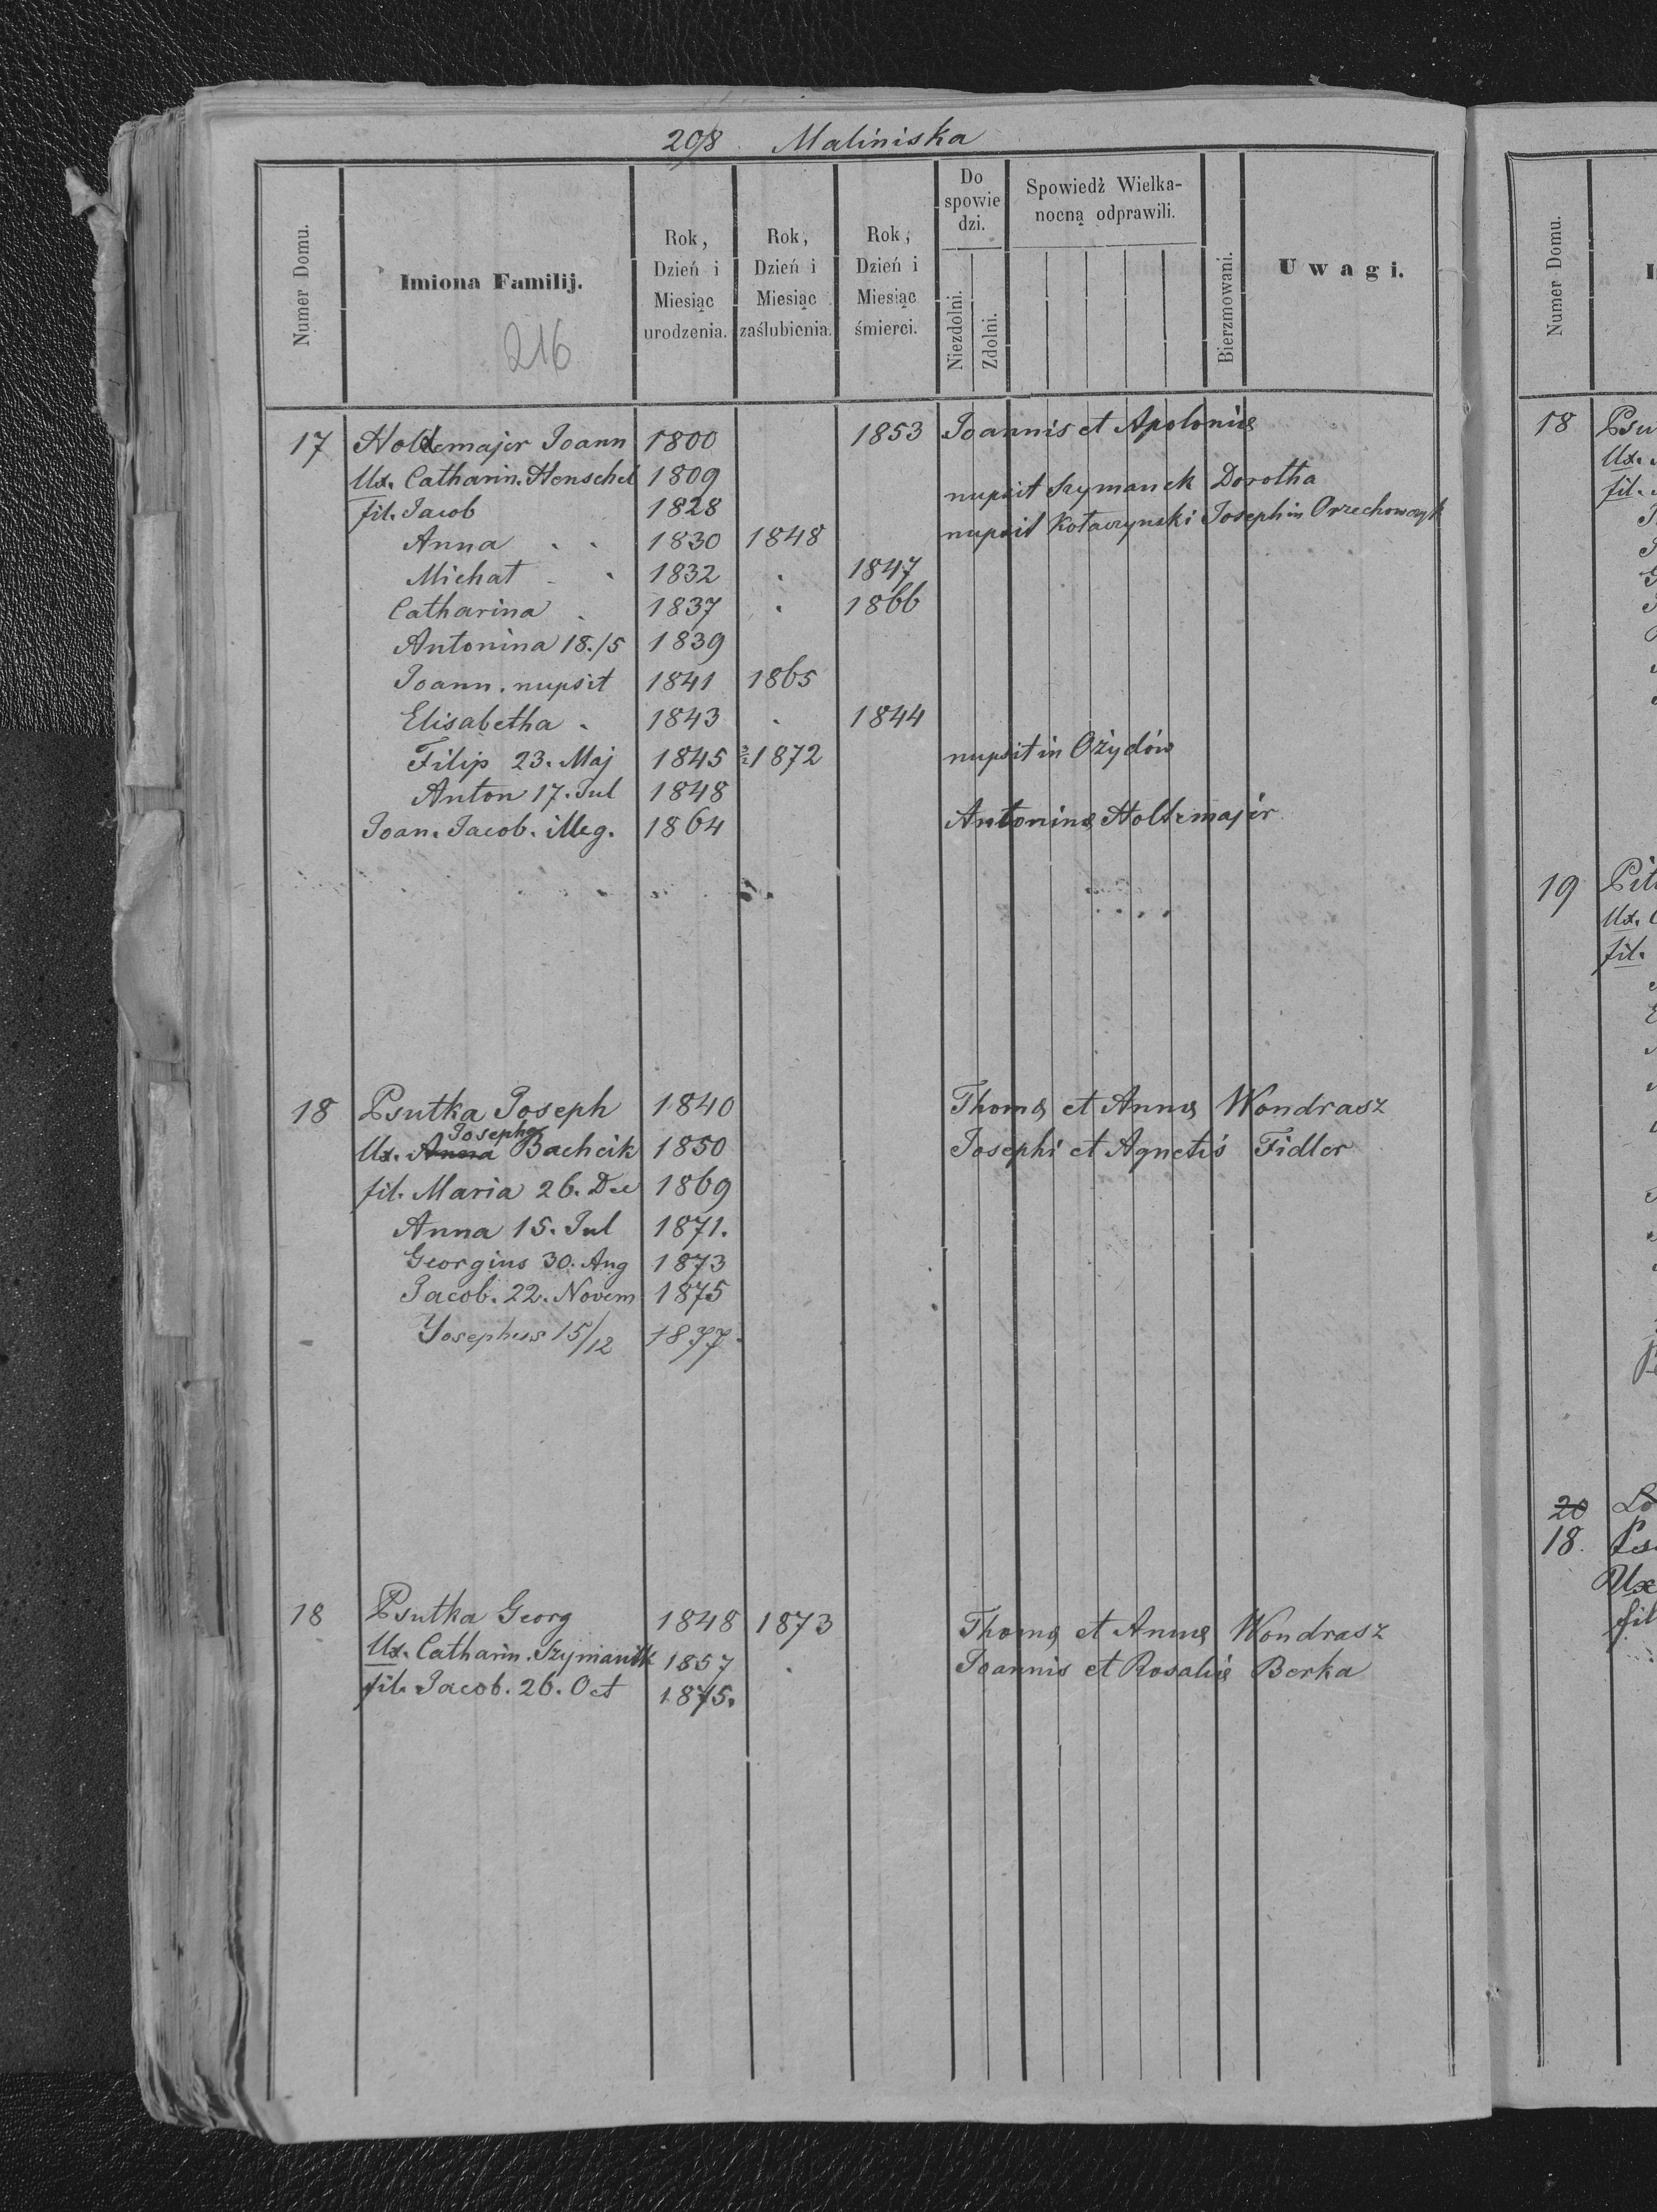 208 Maliniska
Numer Domu.
Imiona Familij.
Rok, Dzień i Miesiąc urodzenia.
Rok, Dzień i Miesiąc zaślubienia.
Rok, Dzień i Miesiąc śmierci.
Do spowiedzi.
Niezdolni.
Zdolni.
Spowiedź Wielkanocną odprawili.
Bierzmowani.
Uwagi.
216
17 Holtzmajer Joann 1800 1853 Joannis et Apoloniæ
Ux. Catharin. Henschel 1809
fil. Jacob 1828 nupsit Szymanek Dorotha
Anna 1830 1848 nupsit Kołaczynski Joseph in Orzechowczyk
Michał 1832 1847
Catharina 1837 1866
Antonina 18./5 1839
Joann. nupsit 1841 1865
Elisabetha 1843 1844
Filip 23. Maj 1845 1872 nupsit in Ożydów
Anton 17. Jul 1848
Joan. Jacob. illeg. 1864 Antoninæ Holtzmajer
18 Psutka Joseph 1840 Thomæ et Annæ Wondrasz
Josepha
Ux. Anna Bachcik 1850 Josephi et Agnetis Fidler
fil. Maria 26. Dec 1869
Anna 15. Jul 1871.
Georgius 30. Aug 1873
Jacob. 22. Novem 1875
Yosephus 15/12 1877
18 Psutka Georg 1848 1873 Thomæ et Annæ Wondrasz
Ux. Catharin. Szymanik 1857 Joannis et Rosaliæ Berka
fil. Jacob. 26. Oct 1875.
Numer Domu.
18 Psu
Ux.
fil.
19 Pit
Ux. C
fil.
20 Lo
18. Ps
Ux
fil